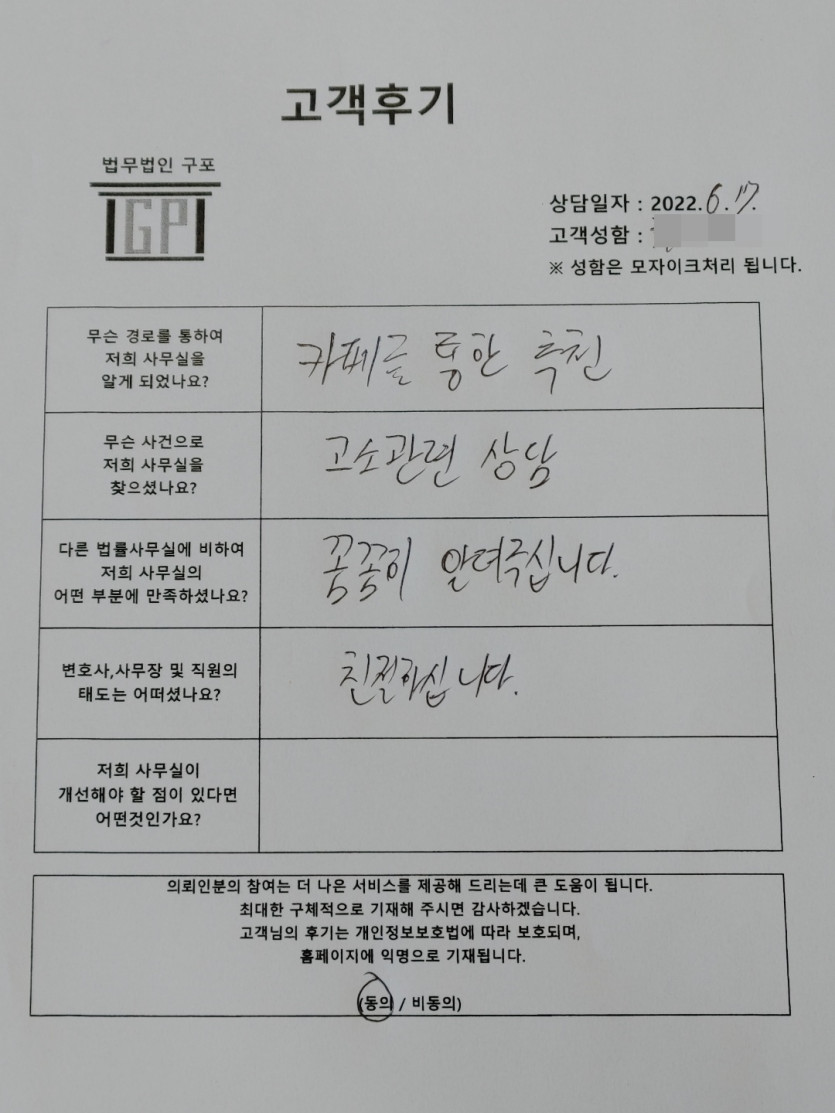 고객후기
법무법인 구포
IGPI
상담일자 : 2022. 6. 17.
고객성함 :
※ 성함은 모자이크처리 됩니다.
무슨 경로를 통하여
저희 사무실을
알게 되었나요?
카페글 통한 추천
무슨 사건으로
저희 사무실을
찾으셨나요?
고소관련 상담
다른 법률사무실에 비하여
저희 사무실의
어떤 부분에 만족하셨나요?
꼼꼼히 알려주십니다.
변호사,사무장 및 직원의
태도는 어떠셨나요?
친절하십니다.
저희 사무실이
개선해야 할 점이 있다면
어떤것인가요?
의뢰인분의 참여는 더 나은 서비스를 제공해 드리는데 큰 도움이 됩니다.
최대한 구체적으로 기재해 주시면 감사하겠습니다.
고객님의 후기는 개인정보보호법에 따라 보호되며,
홈페이지에 익명으로 기재됩니다.
(동의 / 비동의)